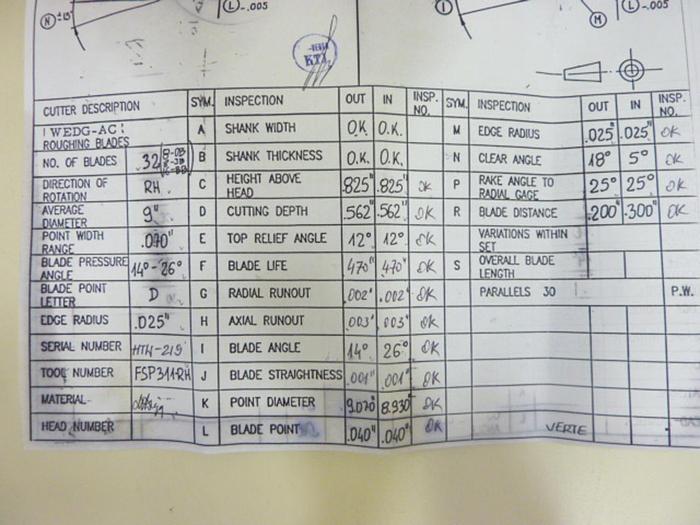 N ±15'
L -.005
I
M
L -.005
KTI
CUTTER DESCRIPTION SYM. INSPECTION OUT IN INSP. NO. SYM. INSPECTION OUT IN INSP. NO.
WEDG-AC ROUGHING BLADES A SHANK WIDTH O.K. O.K. M EDGE RADIUS .025" .025" OK
NO. OF BLADES 32 B SHANK THICKNESS O.K. O.K. N CLEAR ANGLE 18° 5° OK
DIRECTION OF ROTATION RH. C HEIGHT ABOVE HEAD .825" .825" OK P RAKE ANGLE TO RADIAL GAGE 25° 25° OK
AVERAGE DIAMETER 9" D CUTTING DEPTH .562" .562" OK R BLADE DISTANCE .200" .300" OK
POINT WIDTH RANGE .070" E TOP RELIEF ANGLE 12° 12° OK VARIATIONS WITHIN SET
BLADE PRESSURE ANGLE 14°-26° F BLADE LIFE 470" 470" OK S OVERALL BLADE LENGTH
BLADE POINT LETTER D G RADIAL RUNOUT .002" .002" OK PARALLELS 30 P.W.
EDGE RADIUS .025" H AXIAL RUNOUT .003" .003" OK
SERIAL NUMBER HTH-219 I BLADE ANGLE 14° 26° OK
TOOL NUMBER FSP311RH J BLADE STRAIGHTNESS .001" .001" OK
MATERIAL K POINT DIAMETER 9.070" 8.930" OK
HEAD NUMBER L BLADE POINT .040" .040" OK VERTE